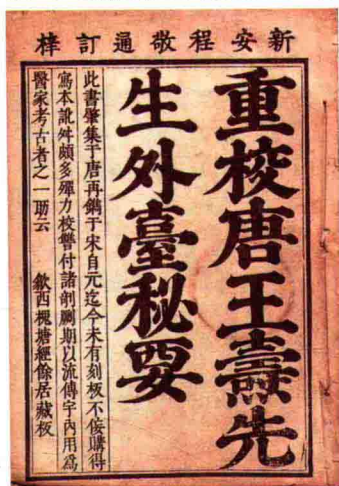 新安程敬通訂梓
重校唐王燾先
生外臺秘要
此書肇集于唐再鐫于宋自元迄今未有刻板不佞購得
寫本訛舛頗多殫力校讐付諸剞劂期以流傳宇內用爲
醫家考古者之一助云
歙西槐塘經餘居藏板